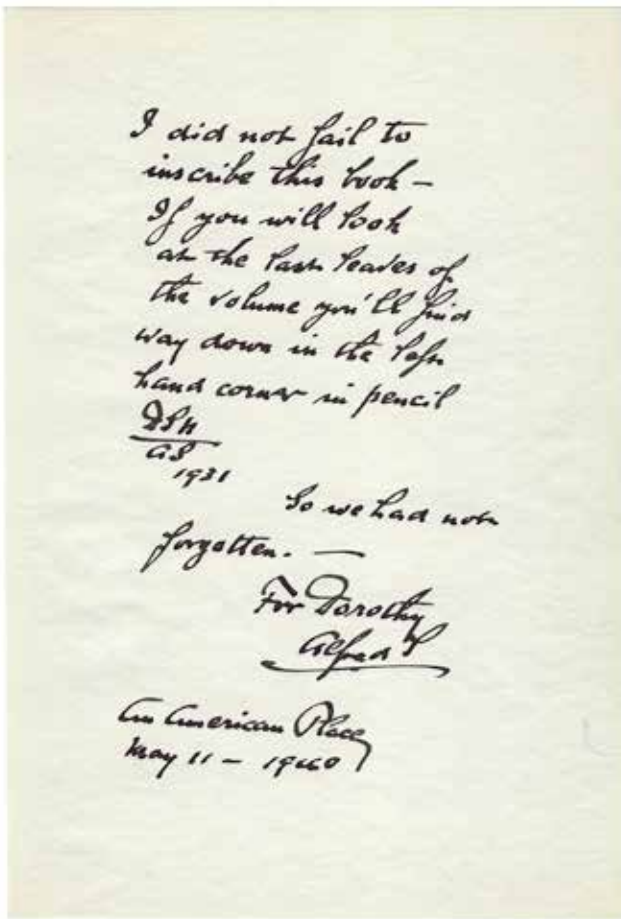 I did not fail to
inscribe this book —
If you will look
at the last leaves of
the volume you'll find
way down in the left
hand corner in pencil
DSN
AS
1931
So we had not
forgotten. —
For Dorothy
Alfred S
An American Place
May 11 – 1940